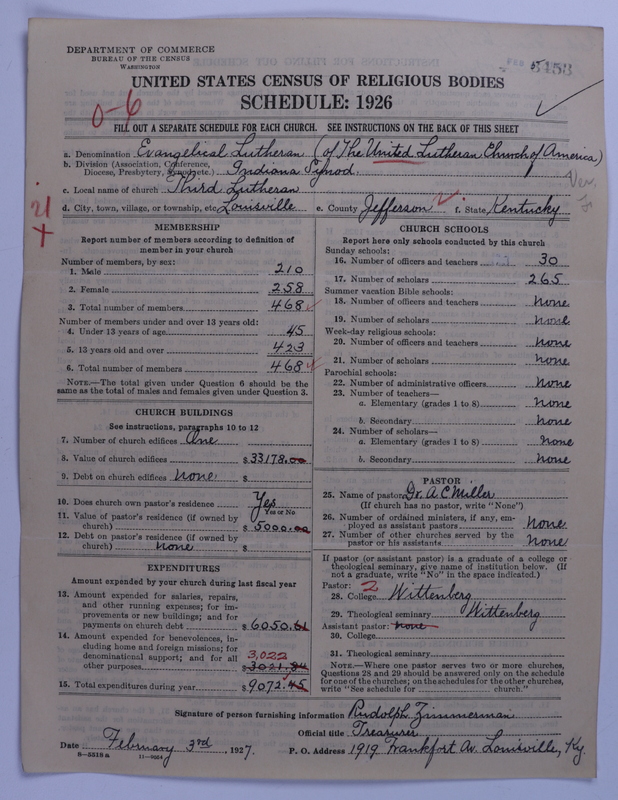 DEPARTMENT OF COMMERCE
BUREAU OF THE CENSUS
WASHINGTON
FEB 5 453
UNITED STATES CENSUS OF RELIGIOUS BODIES
SCHEDULE: 1926
0-6
FILL OUT A SEPARATE SCHEDULE FOR EACH CHURCH. SEE INSTRUCTIONS ON THE BACK OF THIS SHEET
a. Denomination Evangelical Lutheran (of The United Lutheran Church of America)
b. Division (Association, Conference, Diocese, Presbytery, Synod, etc.) Indiana Synod.
c. Local name of church Third Lutheran
d. City, town, village, or township, etc. Louisville e. County Jefferson f. State Kentucky
21
+
MEMBERSHIP
Report number of members according to definition of
member in your church
Number of members, by sex:
1. Male 210
2. Female 258
3. Total number of members 468
Number of members under and over 13 years old:
4. Under 13 years of age 45
5. 13 years old and over 423
6. Total number of members 468
NOTE.—The total given under Question 6 should be the
same as the total of males and females given under Question 3.
CHURCH BUILDINGS
See instructions, paragraphs 10 to 12
7. Number of church edifices One
8. Value of church edifices $33178.00
9. Debt on church edifices None. $
10. Does church own pastor's residence Yes
Yes or No
11. Value of pastor's residence (if owned by
church) $5000.00
12. Debt on pastor's residence (if owned by
church) None $
EXPENDITURES
Amount expended by your church during last fiscal year
13. Amount expended for salaries, repairs,
and other running expenses; for im-
provements or new buildings; and for
payments on church debt $6050.61
14. Amount expended for benevolences, in-
cluding home and foreign missions; for
denominational support; and for all 3,022
other purposes $3021.84
15. Total expenditures during year $9072.45
CHURCH SCHOOLS
Report here only schools conducted by this church
Sunday schools:
16. Number of officers and teachers 30
17. Number of scholars 265
Summer vacation Bible schools:
18. Number of officers and teachers None
19. Number of scholars None
Week-day religious schools:
20. Number of officers and teachers None
21. Number of scholars None
Parochial schools:
22. Number of administrative officers None
23. Number of teachers—
a. Elementary (grades 1 to 8) None
b. Secondary None
24. Number of scholars—
a. Elementary (grades 1 to 8) None
b. Secondary None
PASTOR
25. Name of pastor Dr. A C Miller
(If church has no pastor, write "None")
26. Number of ordained ministers, if any, em-
ployed as assistant pastors None.
27. Number of other churches served by the
pastor or his assistants None
If pastor (or assistant pastor) is a graduate of a college or
theological seminary, give name of institution below. (If
not a graduate, write "No" in the space indicated.)
Pastor: 2
28. College Wittenberg
29. Theological seminary Wittenberg
Assistant pastor: None
30. College
31. Theological seminary
NOTE.—Where one pastor serves two or more churches,
Questions 28 and 29 should be answered only on the schedule
for one of the churches; on the schedules for the other churches,
write "See schedule for church."
Signature of person furnishing information Rudolph Zimmerman
Official title Treasurer
Date February 3rd, 1927. P. O. Address 1919 Frankfort Av. Louisville, Ky.
8-5518a 11-9264